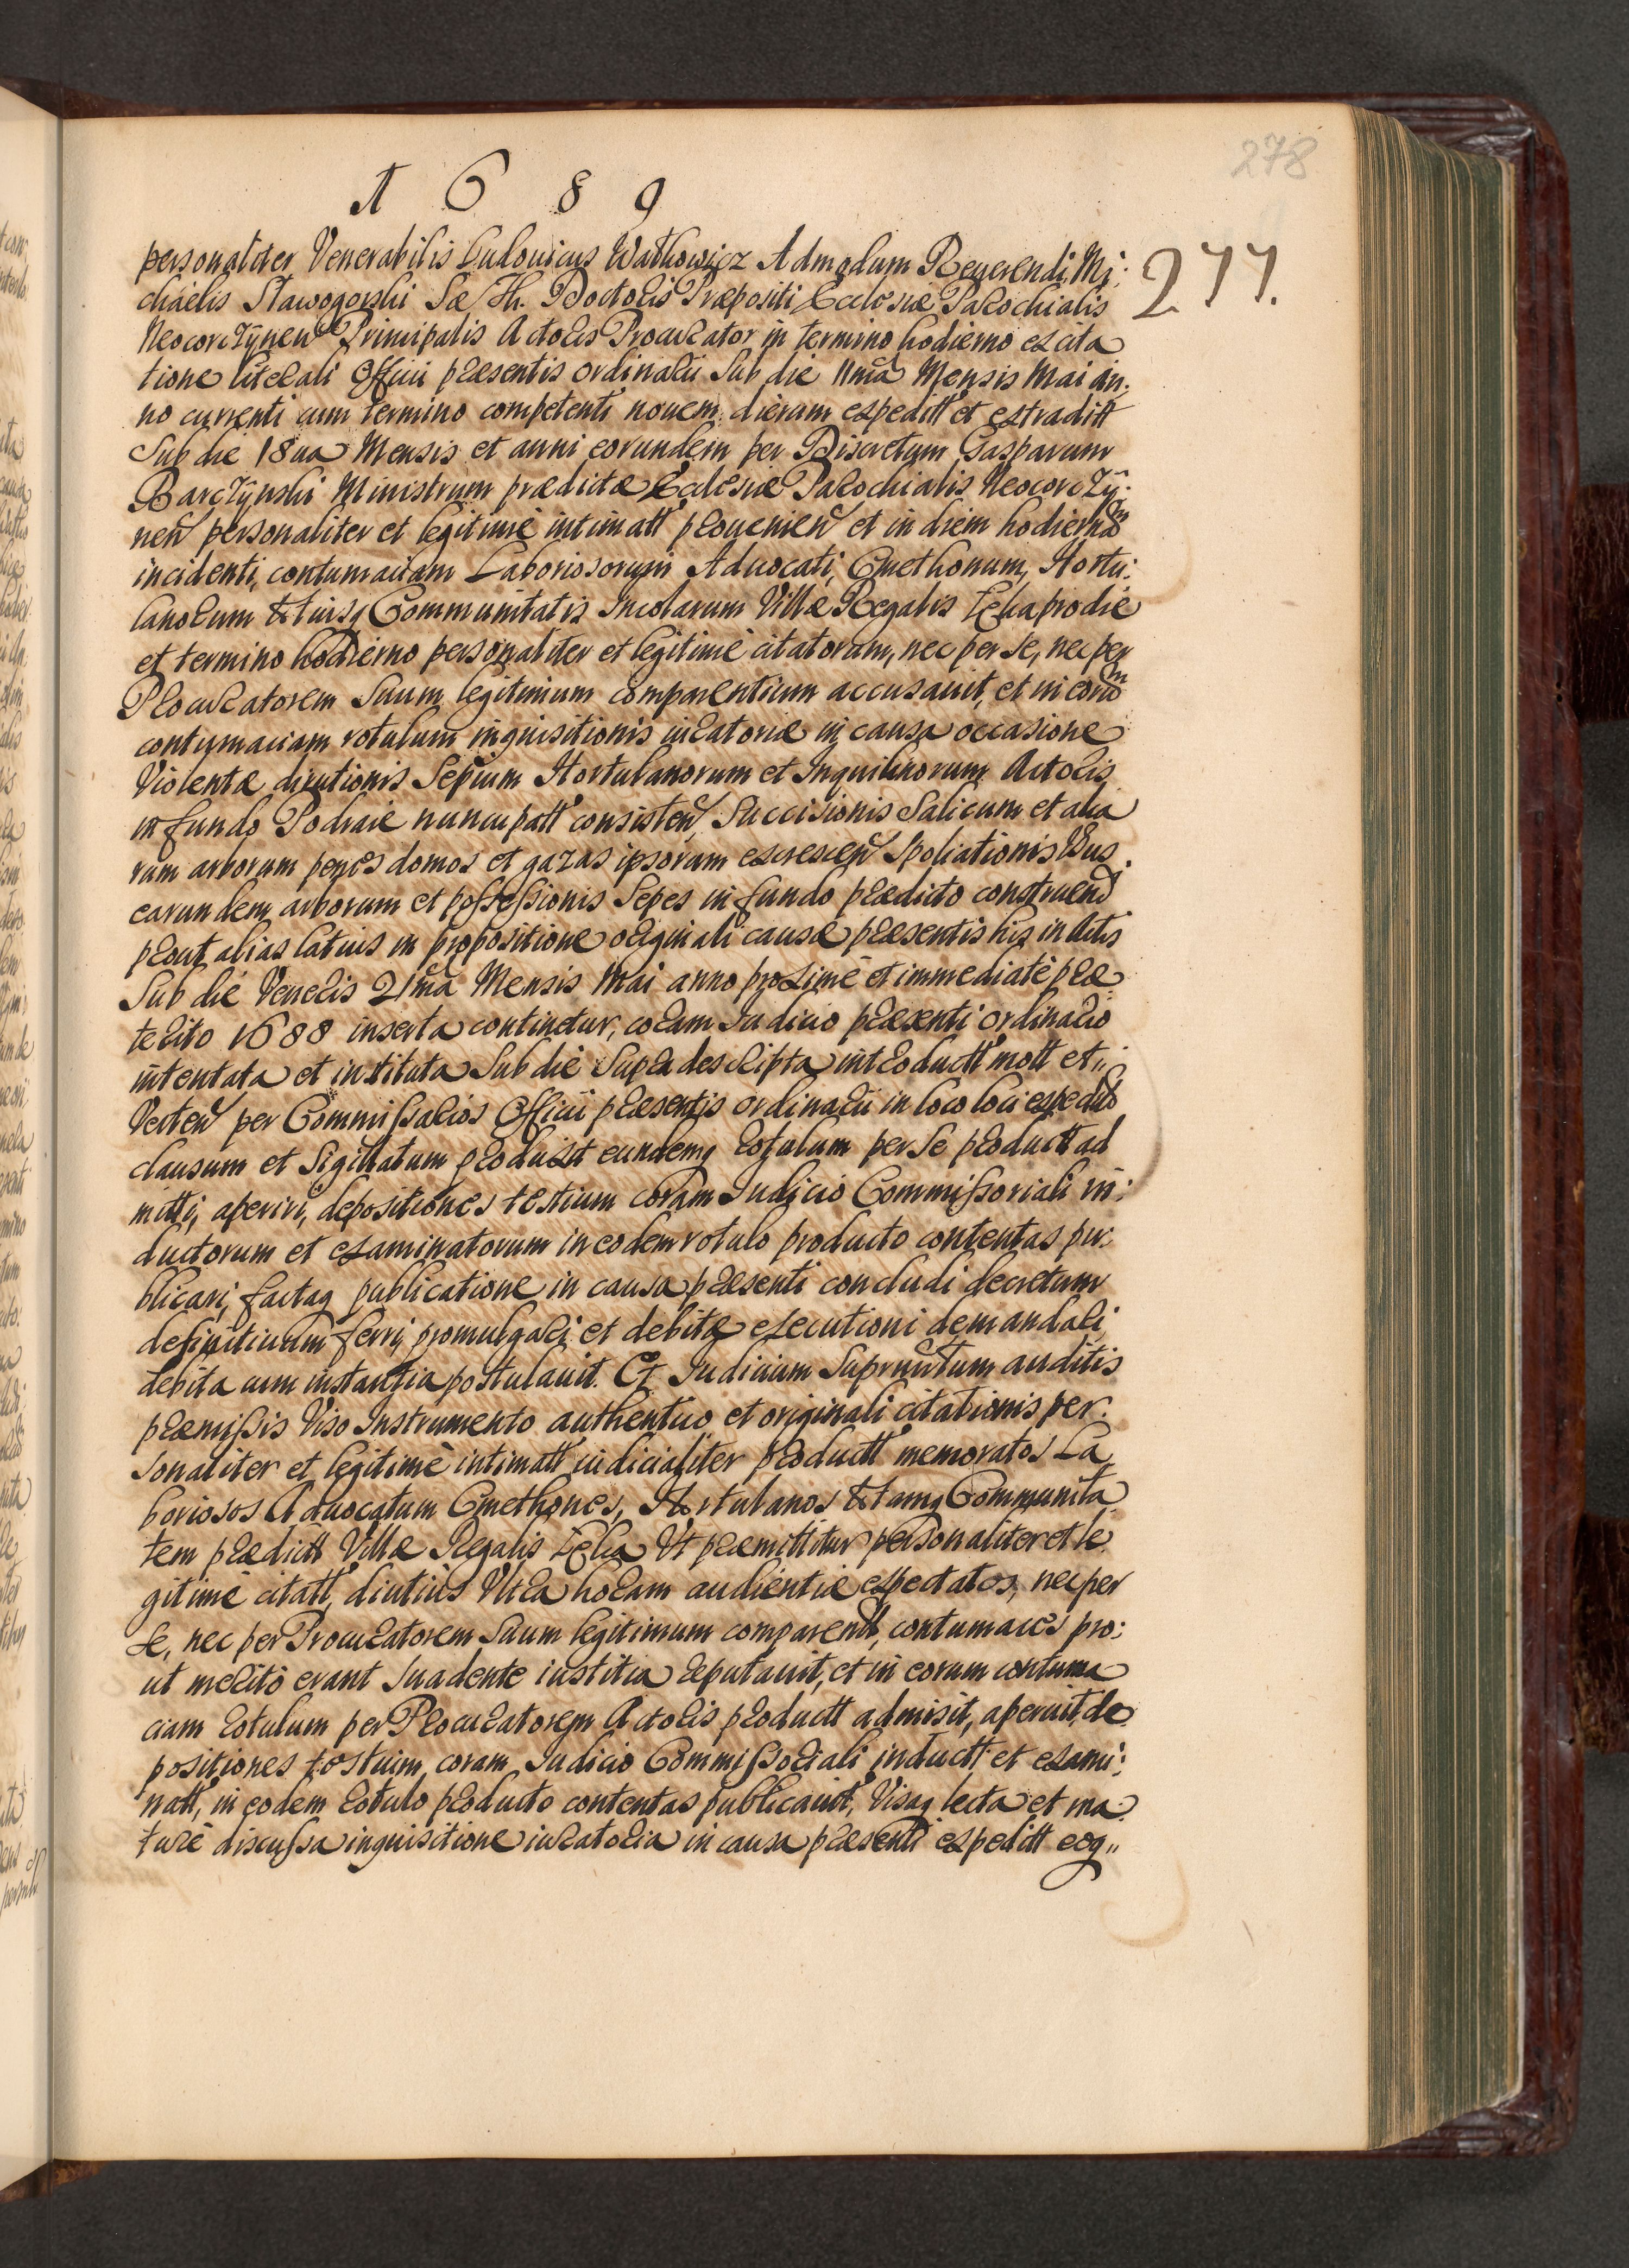 278
1 6 8 9
277.
personaliter Venerabilis Ludouicus Wathowicz Admodum Reuerendi Mi:
chaelis Stawogorski Sæ Th. Doctoris Præpositi Ecclesiæ Parochialis
Neocorczÿnen Principalis Actoris Procurator in termino hodierno ex cita
tione literali Officii præsentis ordinarii Sub die 11ma Mensis Mai an:
no currenti cum termino competenti nouem dierum expeditt et extraditt
Sub die 18ua Mensis et anni eorundem per Discretum Gasparum
Barczÿnski Ministrum prædictæ Ecclesiæ Parochialis Neocorczÿ:
nen personaliter et legitime intimatt prouenien et in diem hodiernam
incidenti, contumaciam Laboriosorum Aduocati, Cmethonum, Hortu:
lanorum totiusq Communitatis Incolarum Villæ Regalis pro die
et termino hodierno personaliter et legitime citatorum, nec per se, nec per
Procuratorem Suum legitimum comparentium accusauit, et in eorum
contumaciam rotulum inquisitionis iuratoriæ in causa occasione
Violentæ dirutionis Sepium Hortulanorum et Inquilinorum Actoris
in fundo Podraie nuncupatt consisten Succisionis Salicum et alia
rum arborum penes domos et gazas ipsorum excrescen Spoliationis
earundem arborum et possessionis Sepes in fundo prædicto construend
prout alias latius in propositione originali causæ præsentis his in Actis
Sub die Veneris 21ma Mensis Mai anno proxime et immediate præ
terito 1688 inserta continetur, coram Iudicio præsenti ordinario
intentata et instituta Sub die Supra descripta introductt mott et"
Verten per Commissarios Officii præsentis ordinarii in loco loci expedito
clausum et Sigillatum produxit eundemq rotulum per Se productt ad
mitti, aperiri, depositiones testium coram Iudicio Commissoriali in:
ductorum et examinatorum in eodem rotulo producto contentas pu:
blicari, factaq publicatione in causa præsenti concludi decretum
definitiuum ferri, promulgari et debitæ executioni demandari
debita cum instantia postulauit. Et Iudicium auditis
præmissis Viso Instrumento authentico et originali citationis per:
sonaliter et legitime intimatt iudicialiter productt memoratos La
boriosos Aduocatum Cmethones, Hortulanos totamq Communita
tem prædictt Villæ Regalis Vt præmittitur personaliter et le
gitime citatt, diutius Vltra horam audientiæ expectatos, nec per
se, nec per Procuratorem Suum legitimum comparentt, contumaces pro:
ut merito erant Suadente iustitia reputauit, et in eorum contuma
ciam rotulum per Procuratorem Actoris productt admisit, aperuit, de
positiones testium, coram Iudicio Commissoriali inductt et exami:
natt, in eodem rotulo producto contentas publicauit, Visaq lecta et ma
ture discussa inquisitione iuratoria in causa præsenti expeditt eoq"